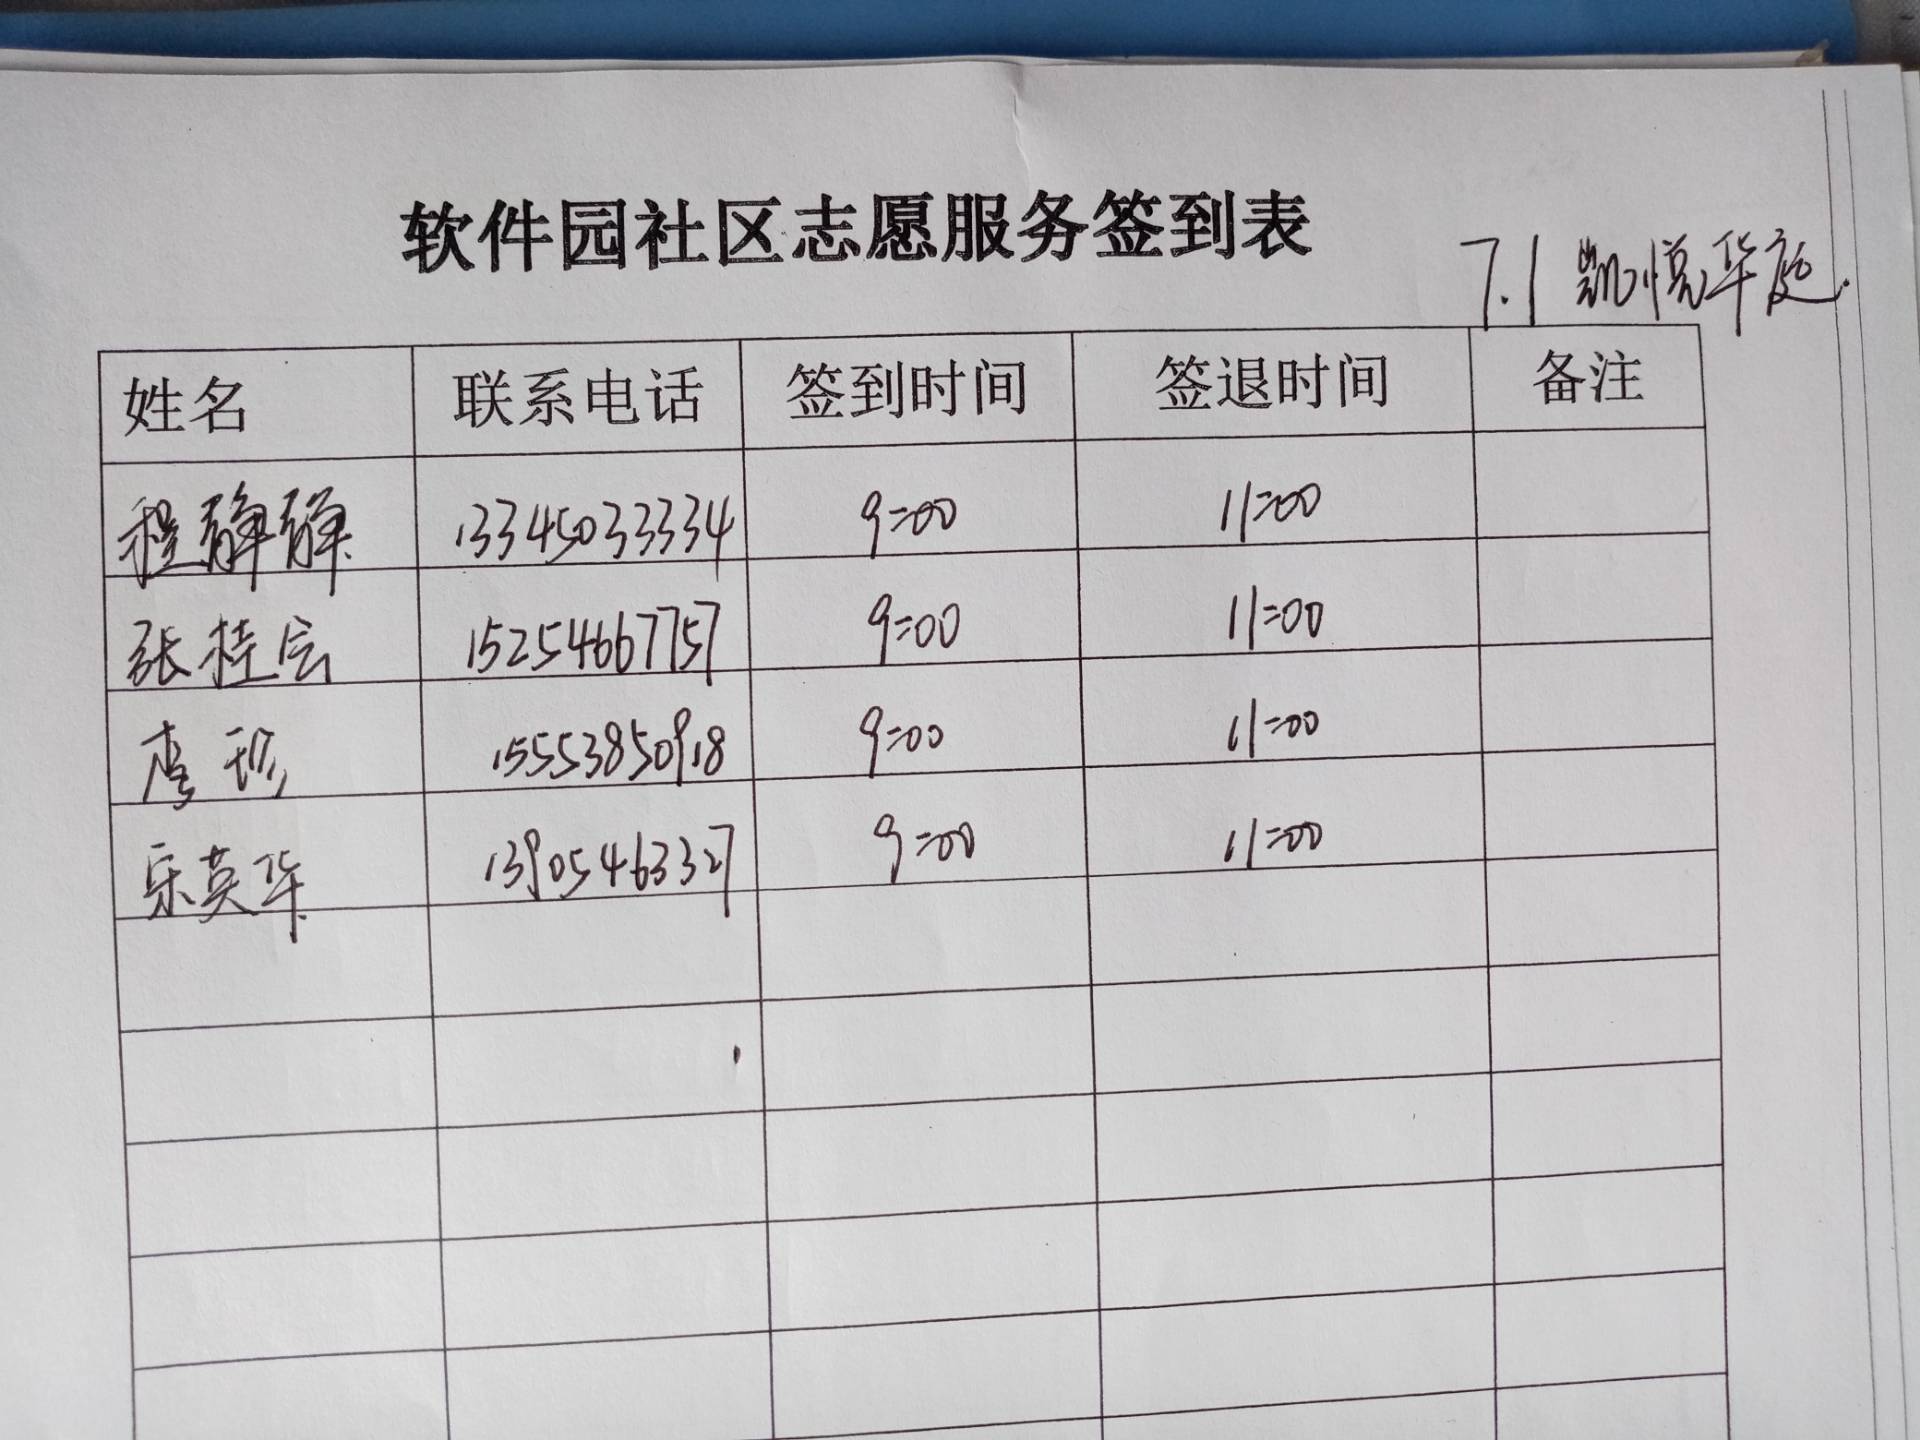 软件园社区志愿服务签到表
7.1 凯悦华庭.
姓名 联系电话 签到时间 签退时间 备注
程静静 13345033334 9:00 11:00
张桂会 15254667757 9:00 11:00
李珍 15553850918 9:00 11:00
乐英华 13905463327 9:00 11:00